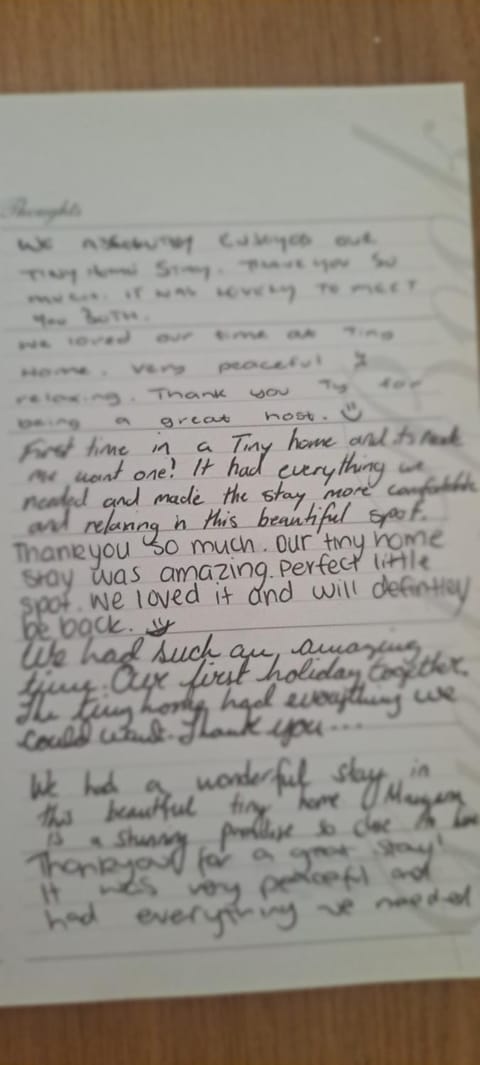 Thoughts
WE ABSOLUTELY ENJOYED OUR
TINY HOME STAY. THANK YOU SO
MUCH. IT WAS LOVELY TO MEET
YOU BOTH.
We loved our time at Tiny
Home. Very peaceful &
relaxing. Thank you Ty for
being a great host.
First time in a Tiny home and its made
me want one! It had everything we
needed and made the stay more comfortable
and relaxing in this beautiful spot.
Thankyou so much. Our tiny home
stay was amazing. Perfect little
spot. We loved it and will definitley
be back.
We had such an amazing
time. Our first holiday together.
The tiny home had everything we
could want. Thank you...
We had a wonderful stay in
this beautiful tiny home
is a stunning so close to
Thankyou for a great stay!
It was very peaceful and
had everything we needed